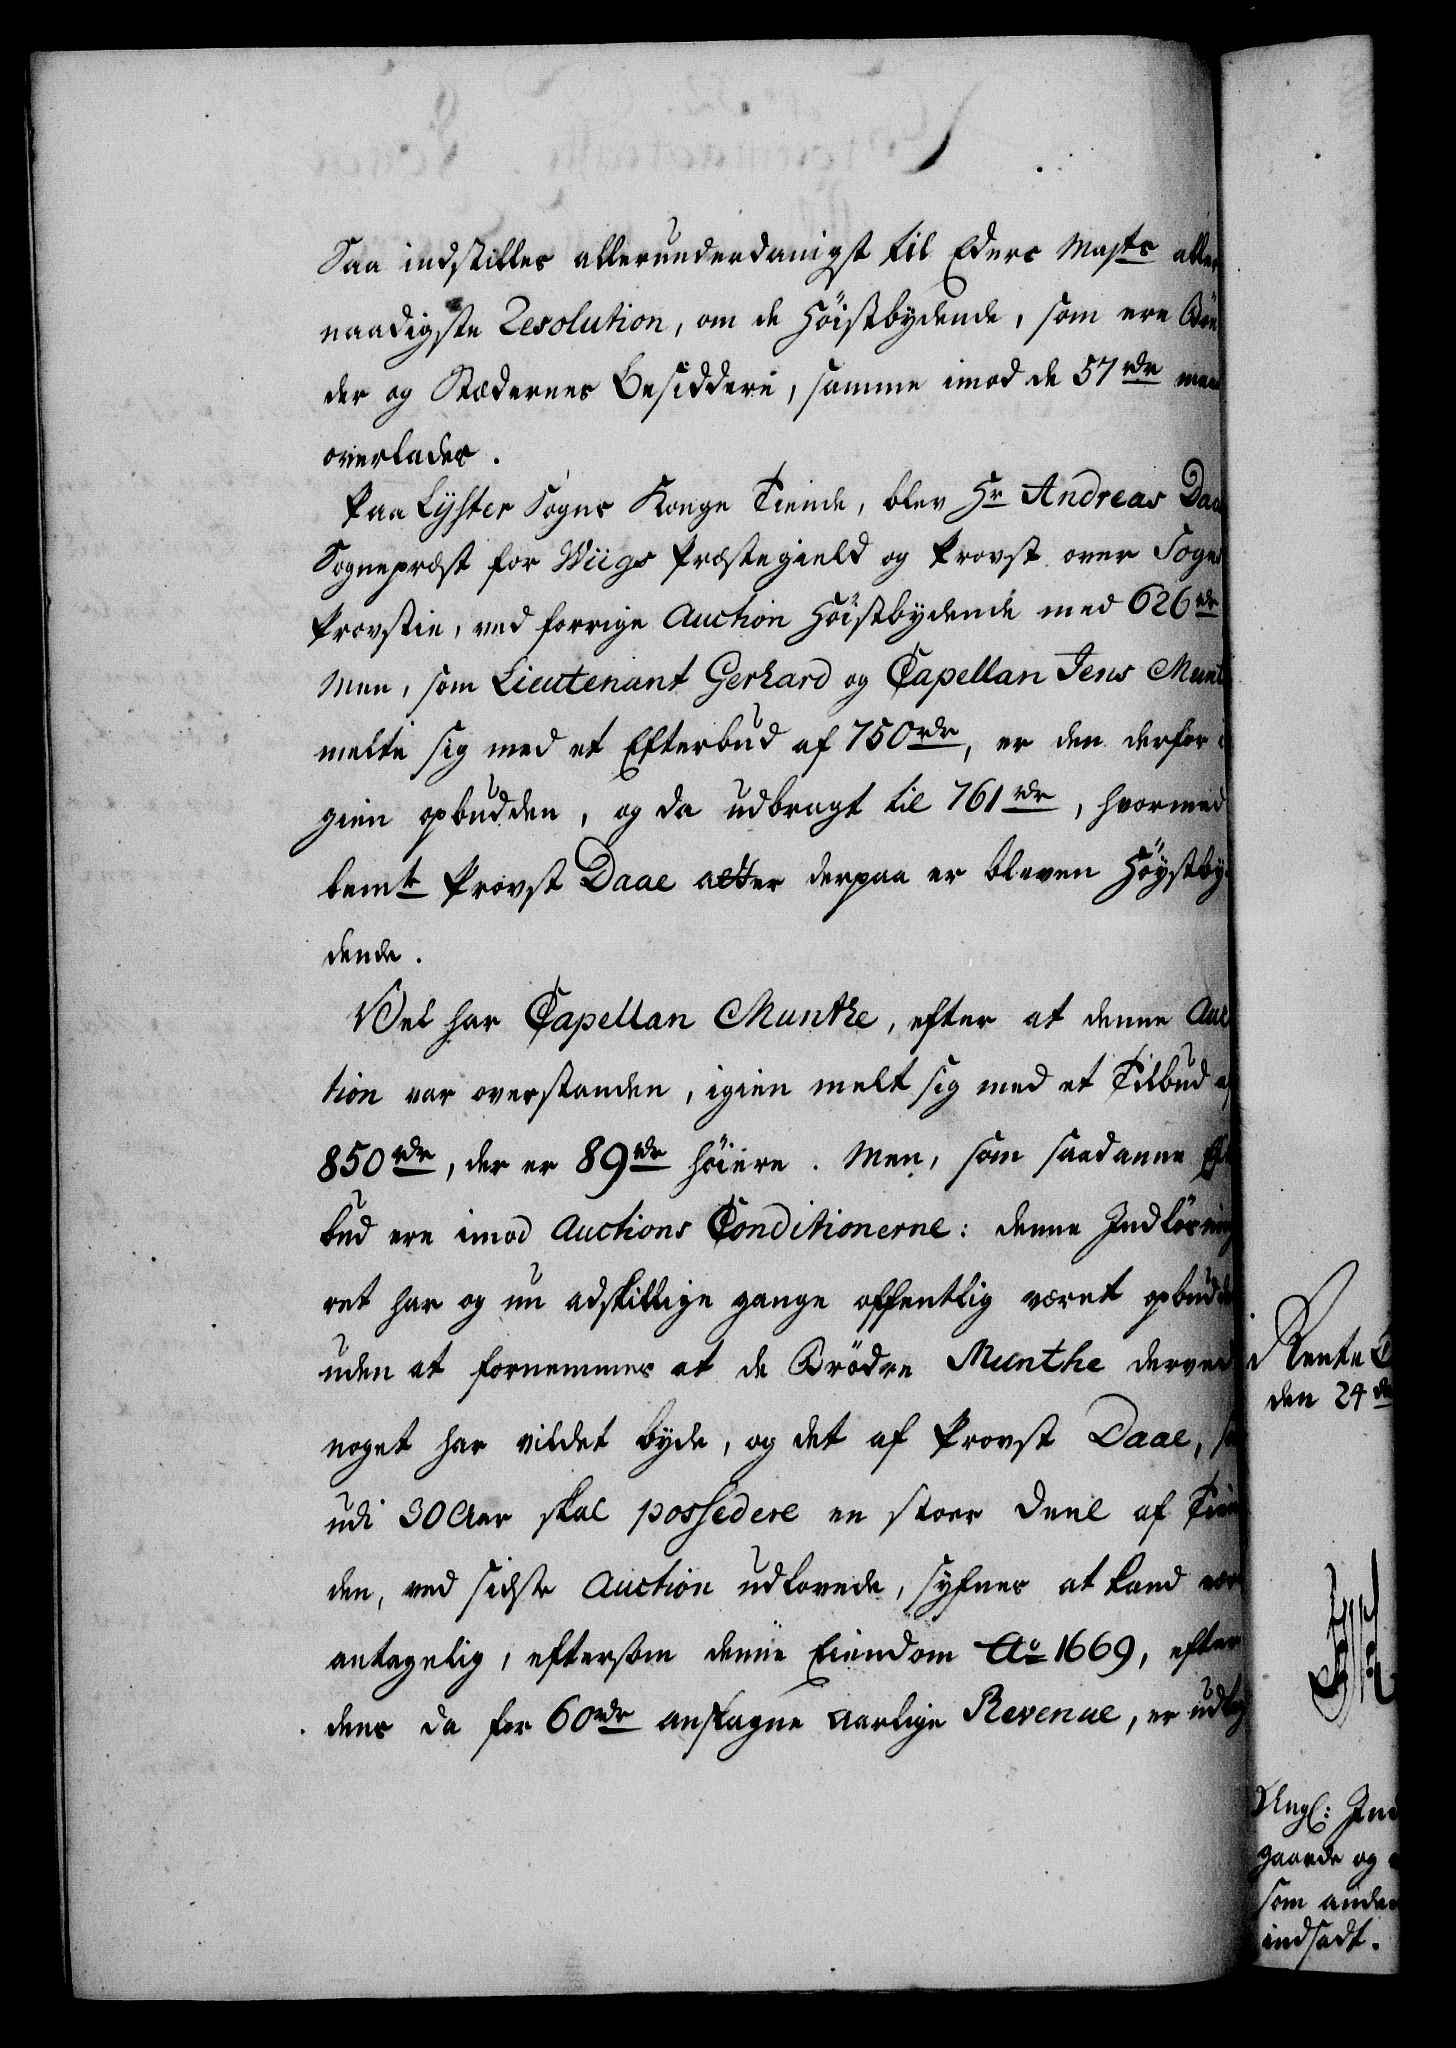 Saa indstilles allerunderdanigst til Eders Majts aller
naadigste Resolution, om de Höistbydende, som ere Bön
der og Stædernes Besiddere, samme imod de 57 rdr maae
overlades.
Paa Lyster Sogns Konge Tiende, blev Hr Andreas Daa
Sognepræst for Wiigs Præstegield og Provst over Sogns
Provstie, ved forrige Auction Höistbydende med 626 rdr
Men, som Lieutenant Gerhard og Capellan Jens Munt
melte sig med et Efterbud af 750 rdr, er den derfor i
gien opbudden, og da udbragt til 761 rdr, hvormed
bemte Provst Daae atter derpaa er bleven Höystby
dende.
Vel har Capellan Munthe, efter at denne Auc
tion var overstanden, igien melt sig med et Tilbud af
850 rdr, der er 89 rdr höiere. Men, som saadanne Eft
bud ere imod Auctions Conditionerne: denne Indlösning
ret har og nu adskillige gange offentlig været opbudde
uden at fornemmes at de Brödre Munthe derved
noget har vildet byde, og det af Provst Daae, so
udi 30 Aar skal possedere en stoer Deel af Tien
den, ved sidste Auction udlovede, synes at kand være
antagelig, eftersom denne Eiendom Ao 1669, efter
dens da for 60 rdr anslagne aarlige Revenue, er udlag
Rente C
den 24 de
Angl: Ind
gaarde og
som anden
indsadt.